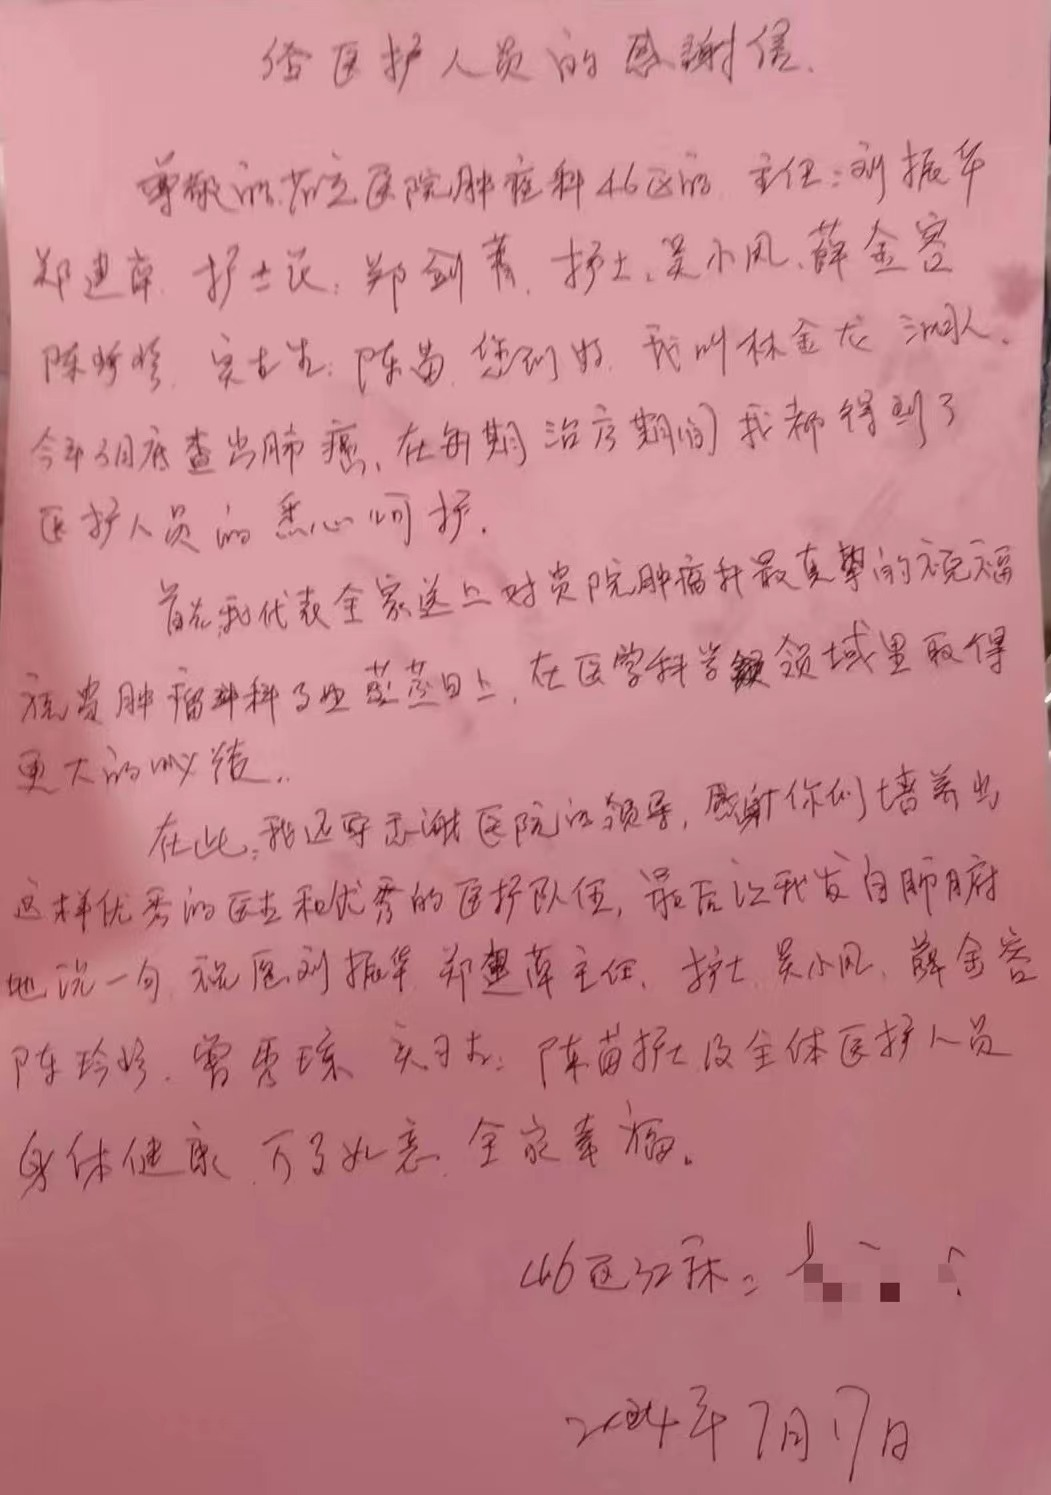 给医护人员的感谢信.
尊敬的省立医院肿瘤科46区的 主任:刘振华
郑建 护士长:郑剑菁. 护士:吴小凤、薛金容
陈 实士生:陈苗.您们好.我叫林金龙 人.
今年3月底查出肺癌、在每期治疗期间我都得到了
医护人员的悉心呵护.
首先我代表全家送上对贵院肿瘤科最真挚的祝福
祝贵肿瘤科科事业蒸蒸日上,在医学科学领域里取得
更大的成绩..
在此,我还要感谢医院的领导,感谢你们培养出
这样优秀的医生和优秀的医护队伍,最后让我发自肺腑
地说一句.祝愿刘振华 郑建 主任.护士 吴小凤.薛金容
陈珍珍.曾秀琼 实习生:陈苗护士及全体医护人员
身体健康.万事如意.全家幸福。
46区32床:
2024年7月17日